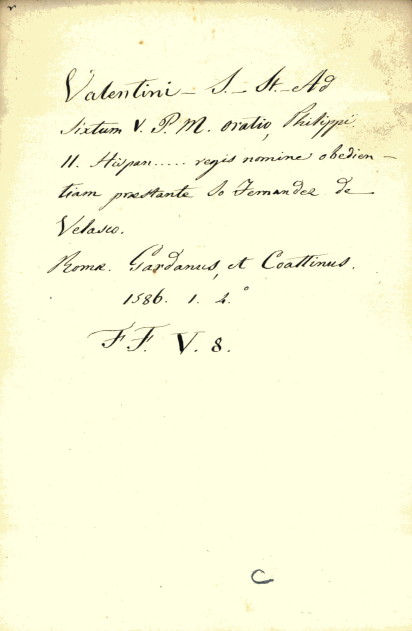 Valentini _ S._ St_ Ad
Sixtum V. P. M. oratio, Philippi
II. Hispan..... regis nomine obedien-
tiam præstante Jo Fernandez de
Velasco.
Romæ. Gardanus, et Coattinus.
1586. 1. 4.°
F F. V. 8.
C